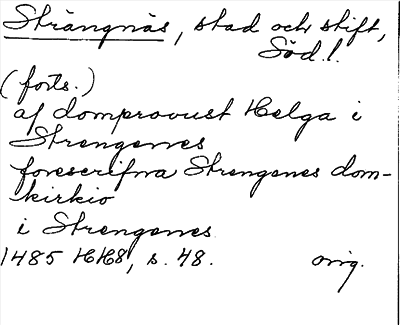 Strängnäs, stad och stift,
Söd.l.
(forts.)
af domprovust Helga i
Strengenes
forescrifna Strengenes dom-
kirkio
i Strengenes
1485 HH8, s. 48. orig.